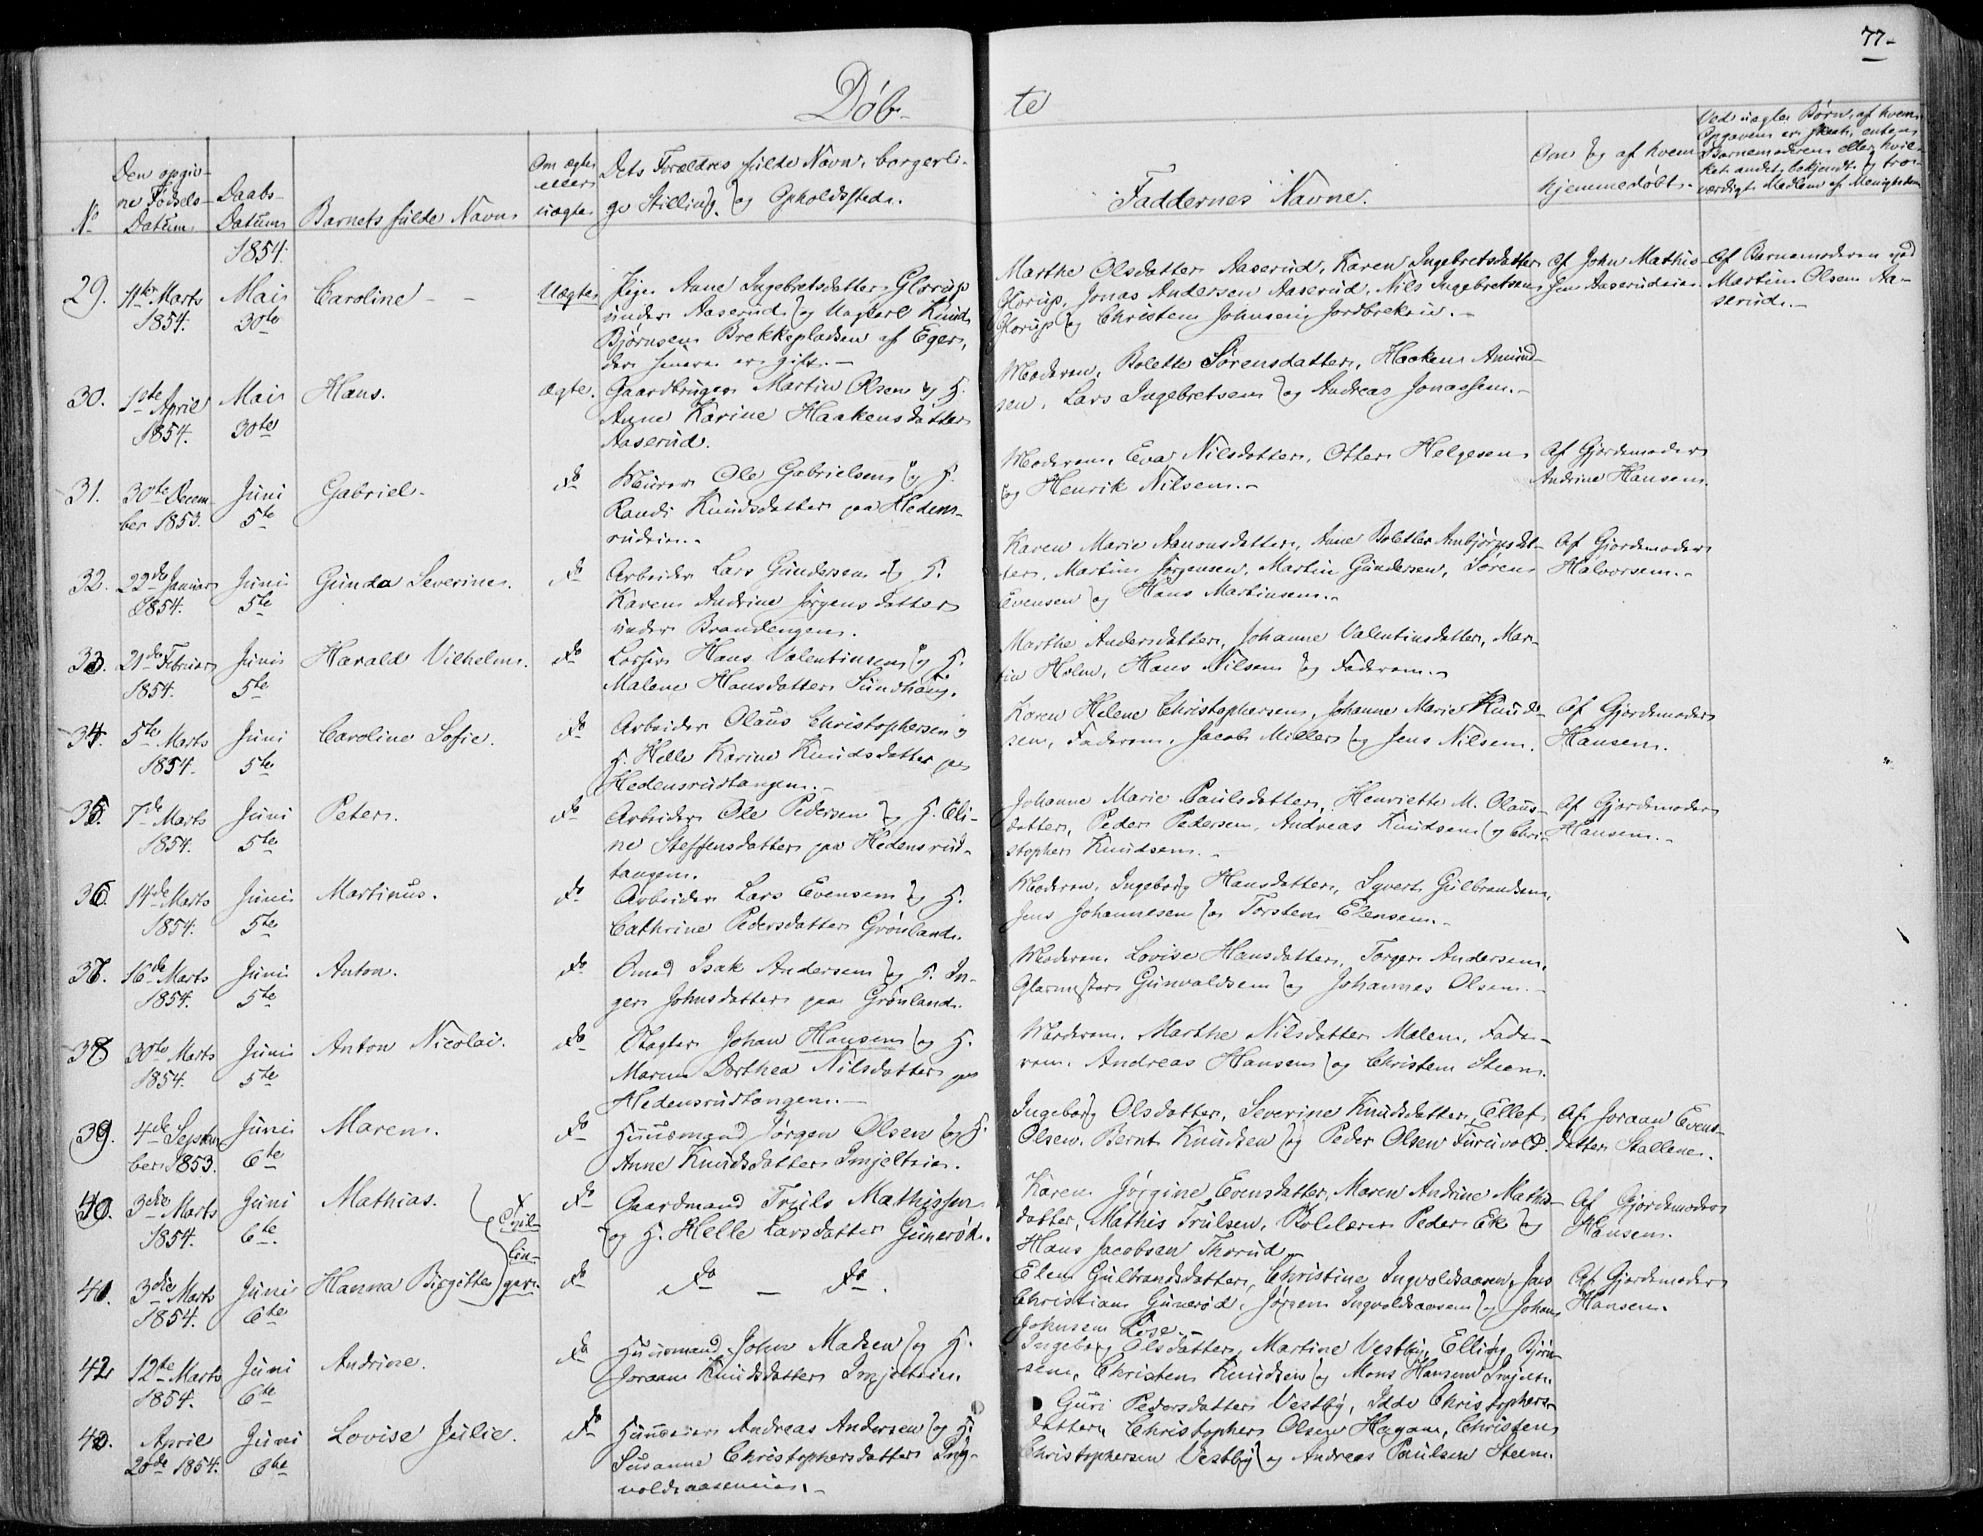 77-
Døb-
te
No
Den opgiv-
ne Fødsels-
Datum
Daabs-
Datum
Barnets fulde Navn
Om ægte
eller
uægte
Dets Forældres fulde Navn, borgerli-
ge Stilling og Opholdssted.
Faddernes Navne.
Om og af hvem
hjemmedøbt.
Ved uægte Børn, af hvem
Opgaven er skeet, enten
Barnemoderen eller hvil-
ket andet bekjendt og tro-
værdigt Medlem af Menigheden
1854.
29.
11te Marts
1854.
Mai
30te
Caroline
Uægte
Pige Anne Ingebretsdatter Glorup
under Aaserud og Ungkarl Knud
Bjørnsen Brekkepladsen af Eger,
der senere er gift.
Marthe Olsdatter Aaserud, Karen Ingebretsdatter
Glorup, Jonas Andersen Aaserud, Nils Ingebretsen
Glorup og Christen Johnsen Jordbrekken.
Af John Mathis-
sen Aaserudeie
Af Barnemoderen ved
Martin Olsen Aa-
serud.
30.
1ste April
1854.
Mai
30te
Hans.
ægte.
Gaardbruger Martin Olsen og H.
Anne Karine Haakensdatter
Aaserud.
Moderen, Bolette Sørensdatter, Haaken Amund-
sen, Lars Ingebretsen og Andreas Jonassen.
31.
30te Decem-
ber 1853.
Juni
5te
Gabriel.
do
Murer Ole Gabrielsen og H.
Randi Knudsdatter paa Hedens-
rudeie.
Moderen, Eva Nilsdatter, Otter Helgesen
og Henrik Nilsen.
Af Gjordemoder
Andrine Hansen.
32.
22de Januar
1854.
Juni
5te
Gunda Severine.
do
Arbeider Lars Gundersen og H.
Karen Andrine Jørgensdatter
under Brandengen.
Karen Marie Aanonsdatter, Anne Bolette Anbjørnsdat-
ter, Martin Jørgensen, Martin Gundersen, Søren
Evensen og Hans Martinsen.
Af Gjordemoder
Halvorsen.
33.
21de Februar
1854.
Juni
5te
Harald Vilhelm.
do
Lods Hans Valentinsen og H.
Malene Hansdatter Sundhaug.
Marthe Andersdatter, Johanne Valentinsdatter, Mar-
tin Holm, Hans Nilsen og Faderen.
34.
5te Marts
1854.
Juni
5te
Caroline Sofie.
do
Arbeider Olaus Christophersen og
H. Helle Karine Knudsdatter paa
Hedensrudtangen.
Karen Helene Christophersen, Johanne Marie Knud-
sen, Faderen, Jacob Miller og Jens Nilsen.
Af Gjordemoder
Hansen.
35.
7de Marts
1854.
Juni
5te
Peter.
do
Arbeider Ole Pedersen og H. Eli-
ne Steffensdatter paa Hedensrud-
tangen.
Johanne Marie Paulsdatter, Henriette M. Olaus-
datter, Peder Pedersen, Andreas Knudsen og Chri-
stopher Knudsen.
Af Gjordemoder
Hansen.
36.
14de Marts
1854.
Juni
5te
Martinus.
do
Arbeider Lars Evensen og H.
Cathrine Pedersdatter Grønland.
Moderen, Ingeborg Hansdatter, Syvert Gulbrandsen,
Jens Johannesen og Torsten Elensen.
37.
16de Marts
1854.
Juni
5te
Anton.
do
Smed Isak Andersen og H. In-
ger Johnsdatter paa Grønland.
Moderen Lovise Hansdatter, Torger Andersen,
Glarmester Gunvaldsen og Johannes Olsen.
38.
30te Marts
1854.
Juni
5te
Anton Nicolai.
do
Slagter Johan Hansen og H.
Maren Dorthea Nilsdatter paa
Hedensrudtangen.
Moderen, Marthe Nilsdatter Malen, Fade-
ren, Andreas Hansen og Christen Steen.
39.
4de Septem-
ber 1853.
Juni
6te
Maren.
do
Huusmand Jørgen Olsen og H.
Anne Knudsdatter Imjelteie.
Ingeborg Olsdatter, Severine Knudsdatter, Ellef
Olsen, Bernt Knudsen og Peder Olsen Furuvold.
Af Joraan Evens-
datter Stallene.
40.
3die Marts
1854.
Juni
6te
Mathias.
Tvil-
lin-
ger.
do
Gaardmand Truls Mathissen
og H. Helle Larsdatter Gunerød.
Karen Jørgine Evensdatter, Maren Andrine Mathis-
datter, Mathis Trulsen, Skolelærer Peder Ek og
Hans Jacobsen Thorud.
Af Gjordemoder
Hansen.
41.
3die Marts
1854.
Juni
6te
Hanna Birgitte
do
do - do.
Elen Gulbrandsdatter, Christine Ingvoldsaasen, Jens
Christian Gunerød, Jørgen Ingvoldsaasen og Johan
Johnsen Lose.
Af Gjordemoder
Hansen.
42
12te Marts
1854.
Juni
6te
Andrine.
do
Huusmand John Madsen og H.
Joraan Knudsdatter Imjelteie.
Ingeborg Olsdatter, Martine Vestby, Elling Bjørn-
sen, Christen Knudsen og Mons Hansen Imjelt.
43.
April
20de 1854.
Juni
6te
Lovise Julie.
do
Huuseier Andreas Andersen og H.
Susanne Christophersdatter Ing-
voldsaaseneie.
Guri Pedersdatter Vestby, Idde Christophers-
datter, Christopher Olsen Hagane, Christen
Christophersen Vestby og Andreas Paulsen Steen.